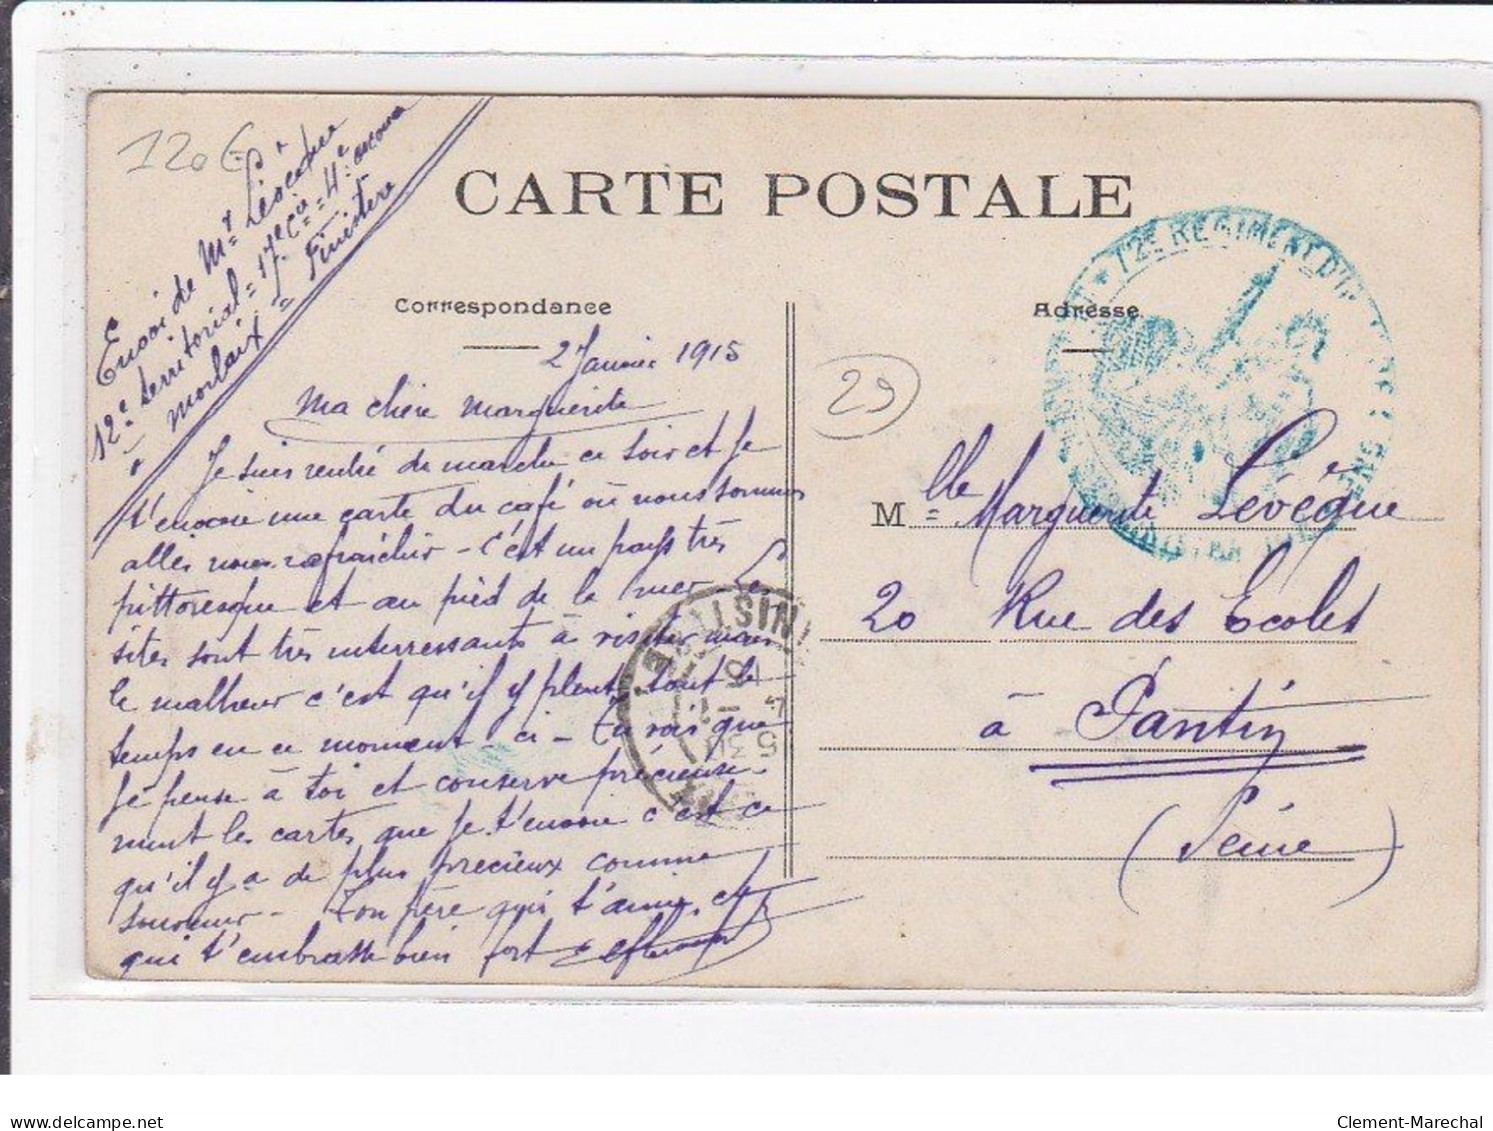 120€
Envoi de Mr Lévêque
12e territorial = 17e Cie = 4e
Morlaix = Finistère
CARTE POSTALE
Correspondance
Adresse
12e REGIMENT D'
2 Janvier 1915
Ma chère Marguerite
Je suis rentré de marche ce soir et je
t'envoie une carte du café où nous sommes
allés nous rafraîchir - c'est un pays très
pittoresque et au pied de la mer - Les
sites sont très interressants à visiter mais
le malheur c'est qu'il y pleut tout le
temps en ce moment - ci - Tu vois que
je pense à toi et conserve précieuse-
ment les cartes que je t'envoie c'est ce
qu'il y a de plus precieux comme
souvenir - Ton père qui t'aime et
qui t'embrasse bien fort
29
Mlle Marguerite Lévêque
20 Rue des Ecoles
à Pantin
(Seine)
delcampe.net
Clement-Marechal